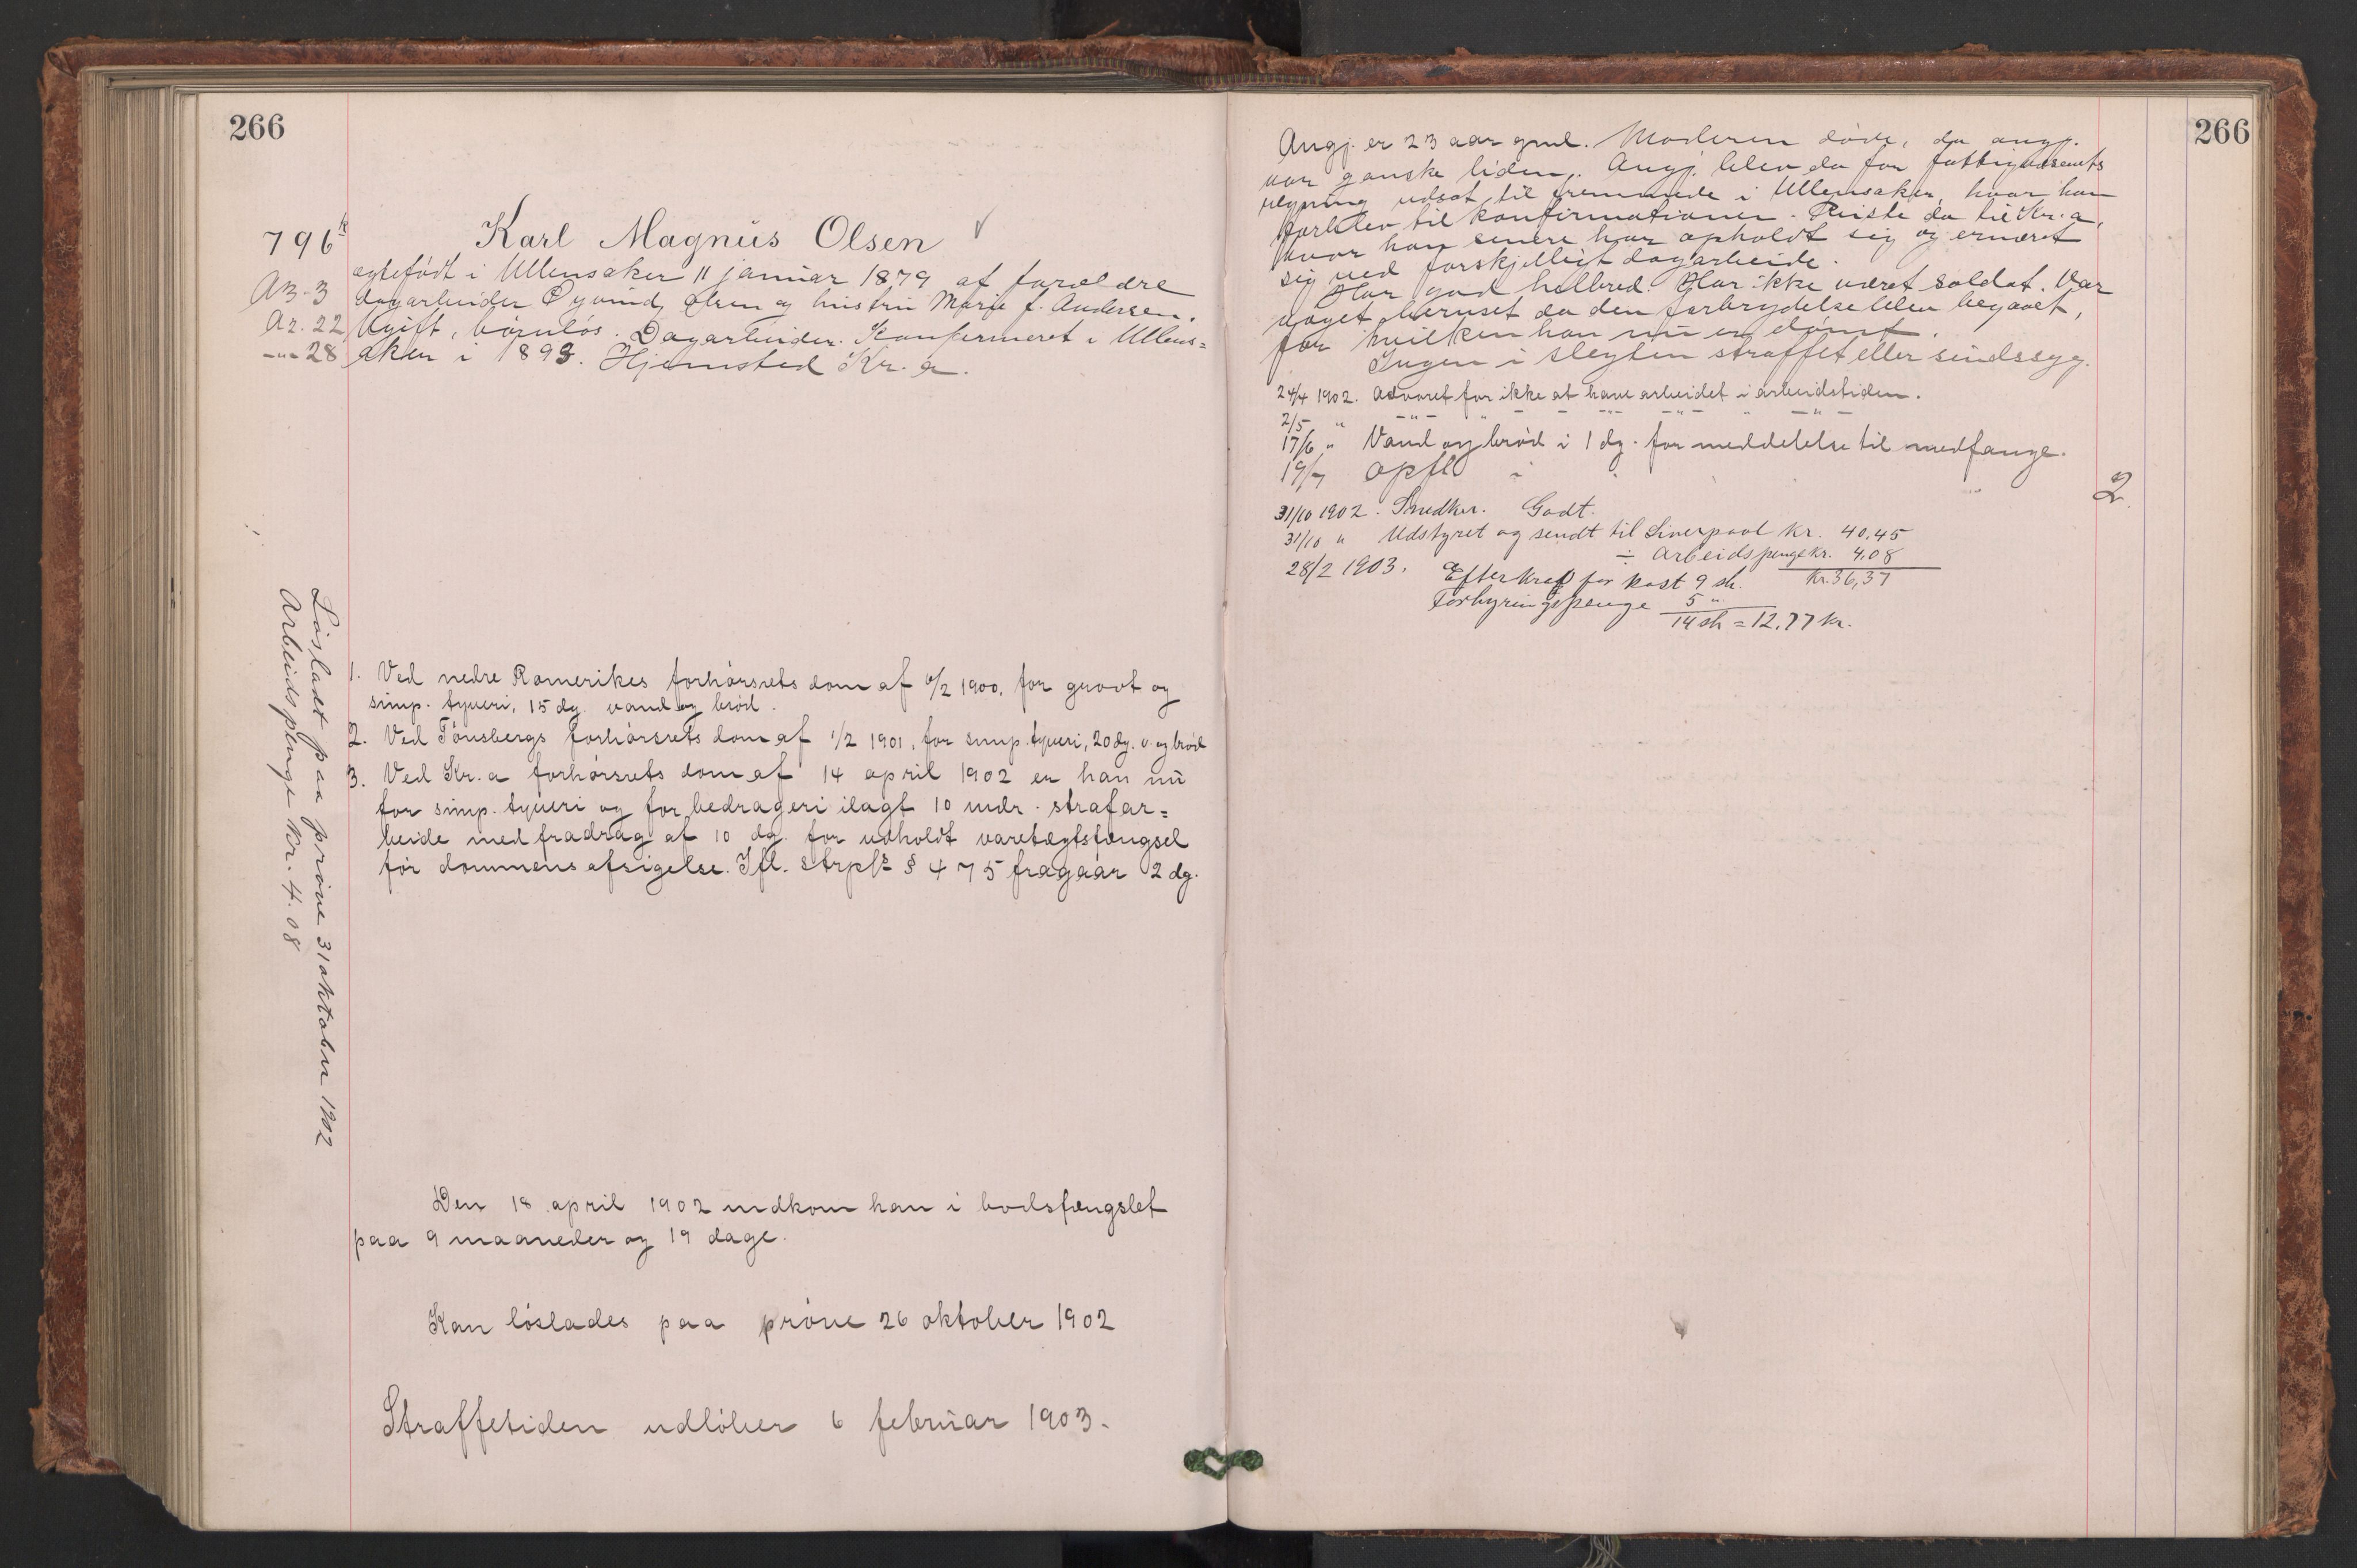 266
796k
Karl Magnus Olsen ✓
AB-3
Ar. 22
-"- 28
ægtefødt i Ullensaker 11 januar 1879 af forældre
dagarbeider Øyvind Olsen og hustru Marie f. Andersen.
Ugift, børnløs. Dagarbeider. Konfirmeret i Ullens=
aker i 1893. Hjemsted Kr.a.
1. Ved nedre Romerikes forhørsrets dom af 6/2 1900, for grovt og
simp. tyveri, 15 dg. vand og brød.
2. Ved Tønsbergs forhørsrets dom af 1/2 1901, for simp. tyveri, 20 dg. v. og brød
3. Ved Kr.a forhørsrets dom af 14 april 1902 er han nu
for simp. tyveri og for bedrageri ilagt 10 mdr. strafar=
beide med fradrag af 10 dg. for udholdt varetægtsfængsel
før dommens afsigelse. Ifl. strpl. § 475 fragaar 2 dg.
Løsladt paa prøve 31 oktober 1902
Arbeidspenge Kr. 4.08
Den 18 april 1902 indkom han i bodsfængslet
paa 9 maaneder og 19 dage.
Kan løslades paa prøve 26 oktober 1902
Straffetiden udløber 6 februar 1903.
266
Angj. er 23 aar gml. Moderen døde, da angj.
var ganske liden. Angj. blev da for fattigvæsenets
regning udsat til fremmede i Ullensaker, hvor han
forblev til konfirmationen. Reiste da til Kr.a,
hvor han senere har opholdt sig og ernæret
sig ved forskjelligt dagarbeide.
Har god helbred. Har ikke været soldat. Var
noget beruset da den forbrydelse blev begaaet,
for hvilken han nu er dømt.
Ingen i slegten straffet eller sindssyg.
24/4 1902. Advaret for ikke at have arbeidet i arbeidstiden.
2/5 " -"- " -"- -"- " -"-
17/6 " Vand og brød i 1 dg. for meddelelse til medfange.
19/7 opfl
2
31/10 1902. Snedker. Godt.
31/10 " Udstyret og sendt til Liverpool Kr. 40,45
÷ Arbeidspenge kr. 4,08
Kr. 36,37
28/2 1903. Efterkrav for kost 9 sh.
Forhyringspenge 5 "
14 sh = 12.77 kr.